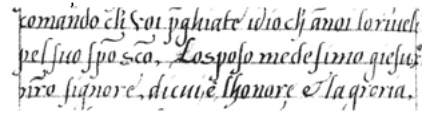 comando ch̃ voi p̃ghiate idio ch̃ a noi lo riveli
pel suo spõ scõ. Lo sposo medesimo giesu x̃
nr̃o signore, di cui, è lhonore e la groria.